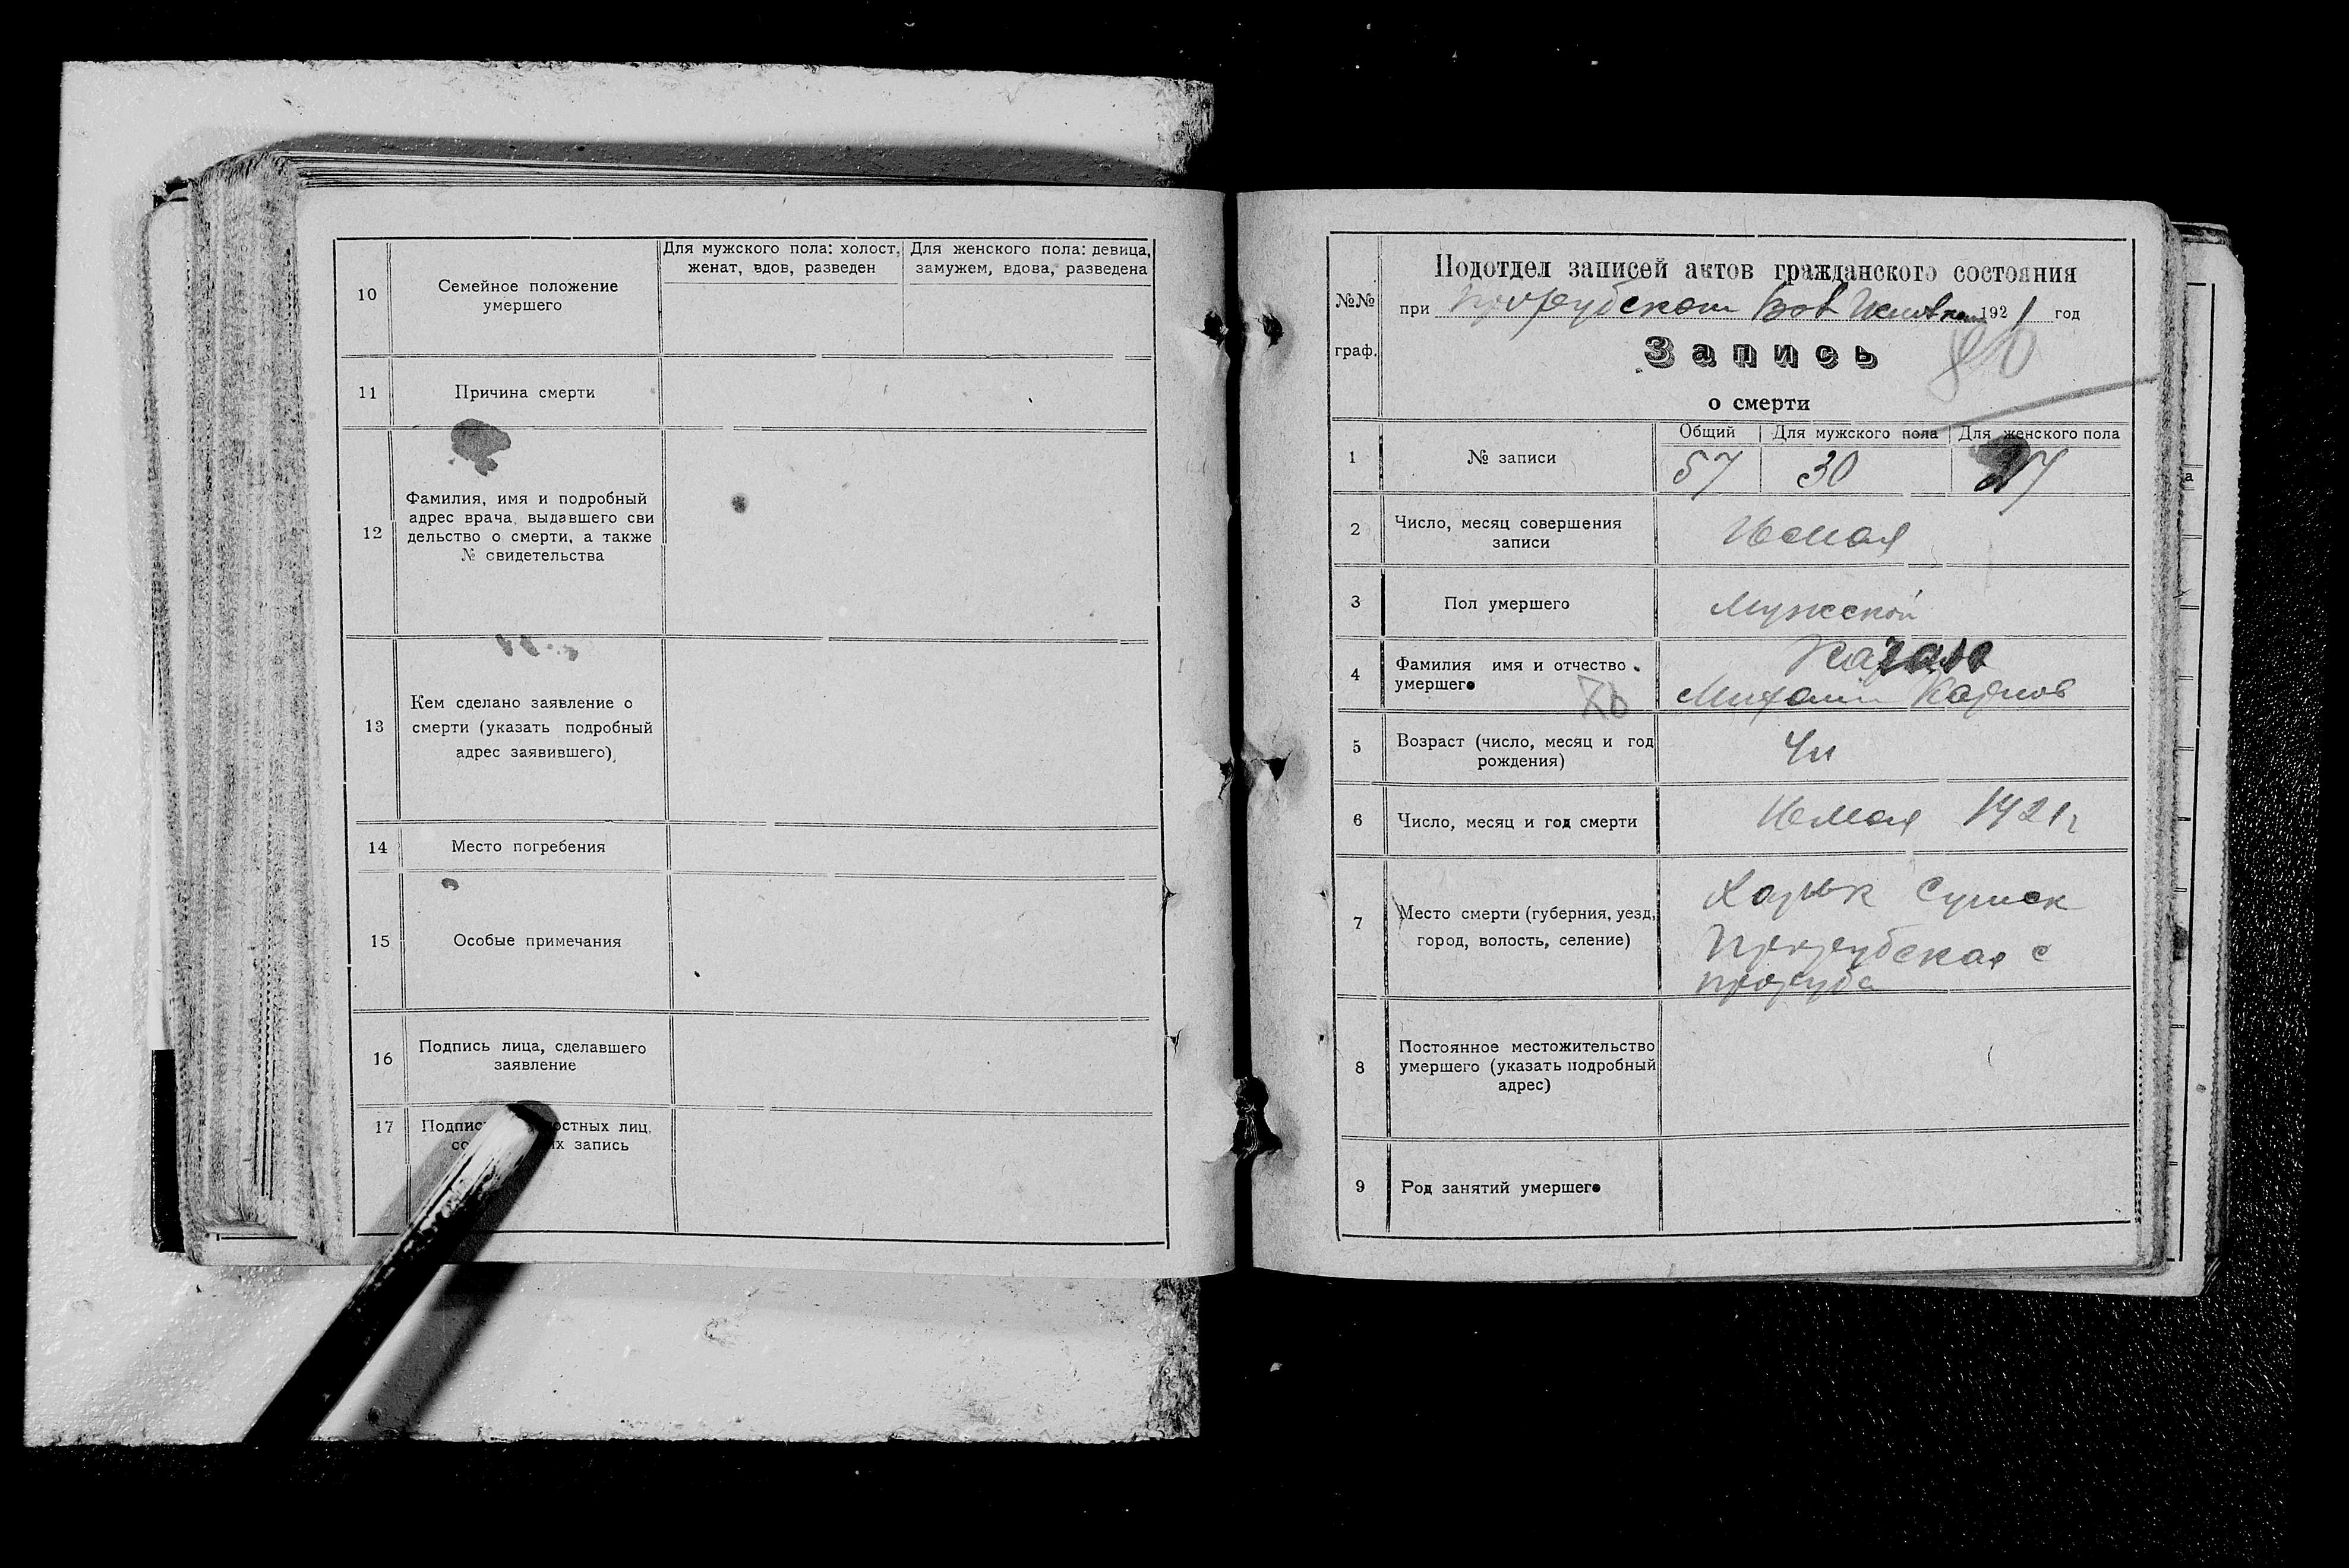 10
Семейное положение
умершего
Для мужского пола: холост,
женат, вдов, разведен
Для женского пола: девица,
замужем, вдова, разведена
11
Причина смерти
12
Фамилия, имя и подробный
адрес врача, выдавшего сви
дельство о смерти, а также
№ свидетельства
13
Кем сделано заявление о
смерти (указать подробный
адрес заявившего)
14
Место погребения
15
Особые примечания
16
Подпись лица, сделавшего
заявление
17
лиц,
запись
№№
граф.
Подотдел записей актов гражданского состояния
при 1921 год
Запись
о смерти
1
№ записи
Общий
Для мужского пола
Для женского пола
57
30
27
2
Число, месяц совершения
записи
мая
3
Пол умершего
Мужской
4
Фамилия имя и отчество
умершего
Михаил Карпов
5
Возраст (число, месяц и год
рождения)
6
Число, месяц и год смерти
мая 1921г
7
Место смерти (губерния, уезд,
город, волость, селение)
Харьк Сумск
Прорубская с
проруба
8
Постоянное местожительство
умершего (указать подробный
адрес)
9
Род занятий умершего